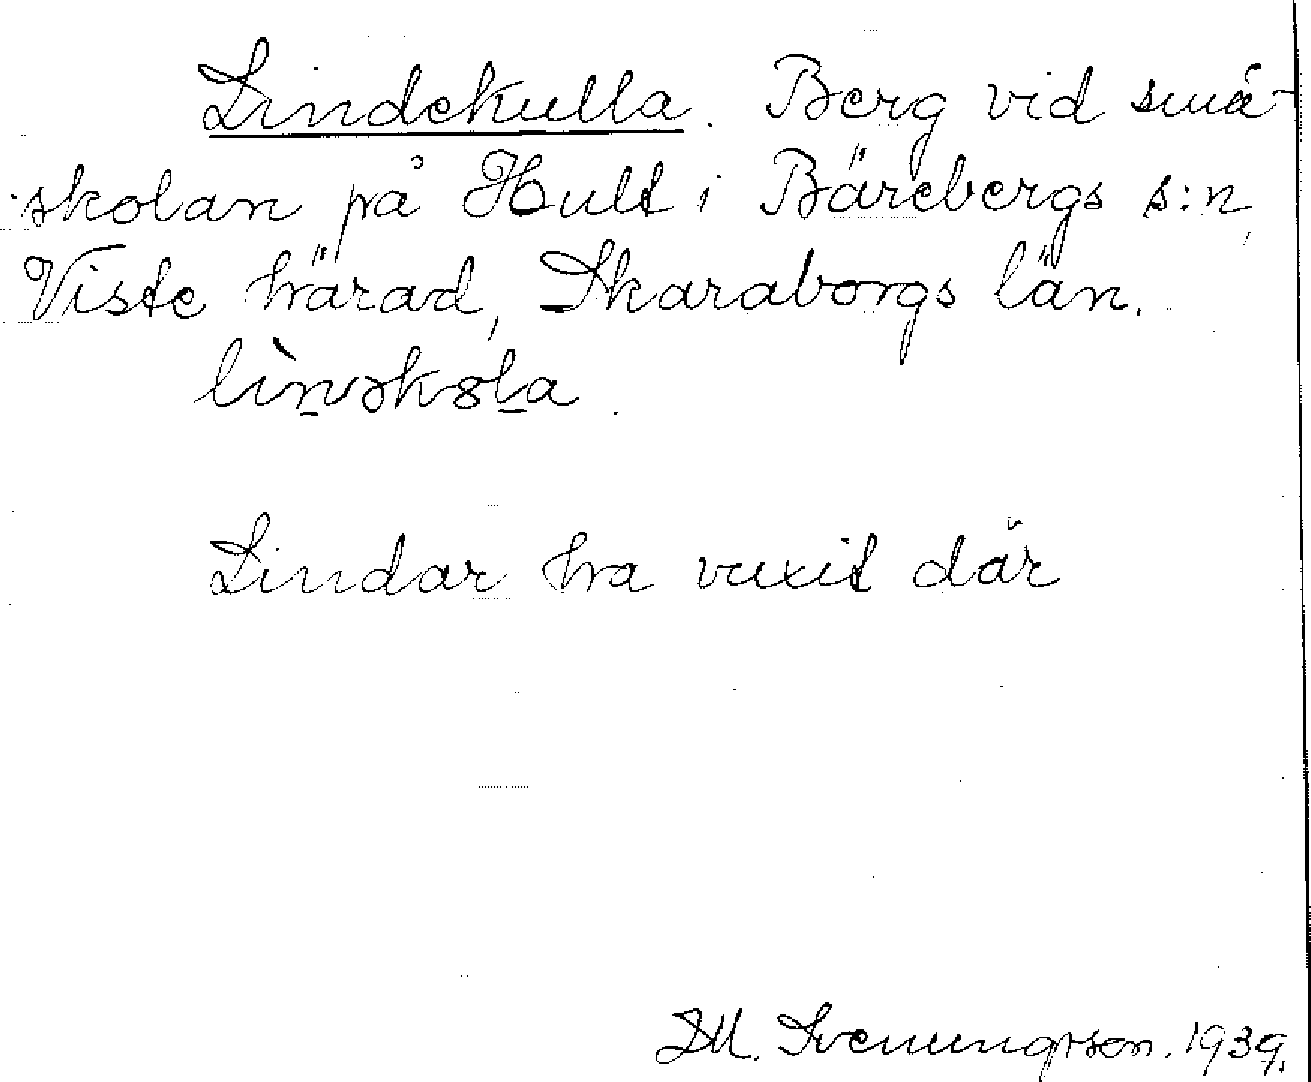 Lindekulla. Berg vid små-
skolan på Hult i Bärebergs s:n,
Viste härad, Skaraborgs län.
Lindar ha vuxit där
Svenungsson. 1939.